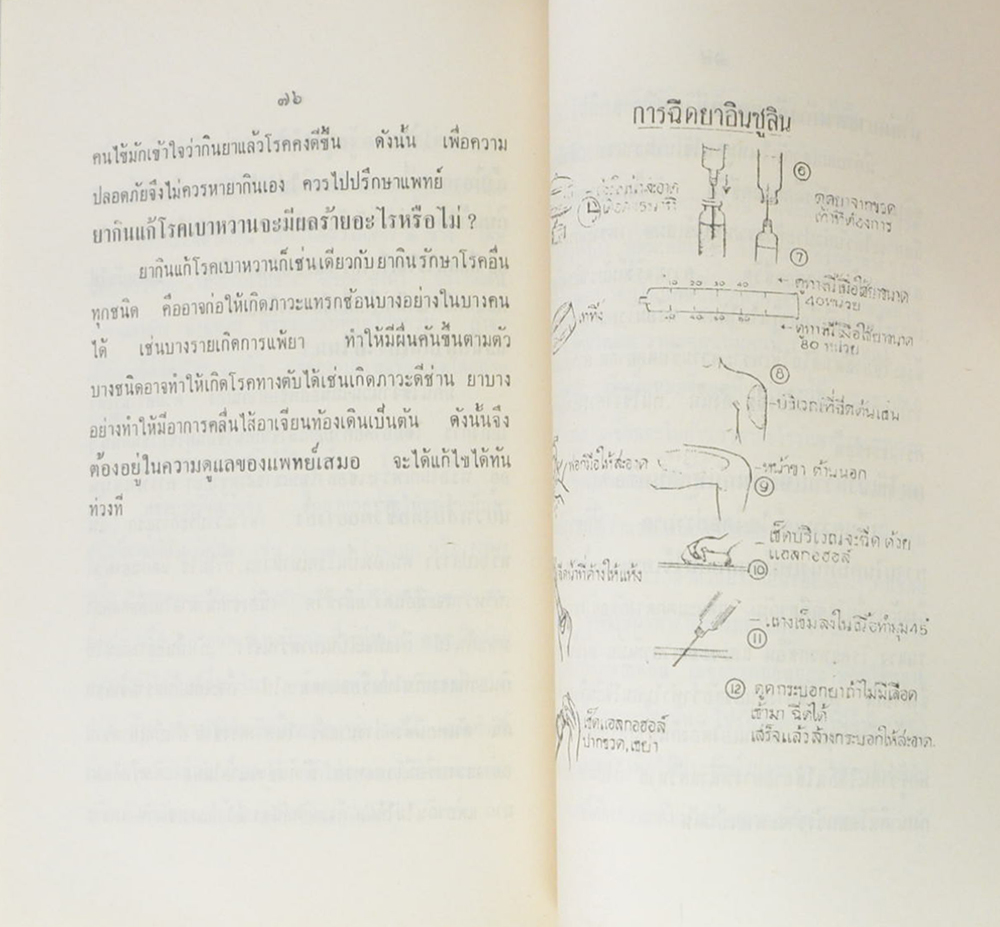 ๗๖
คนไข้มักเข้าใจว่ากินยาแล้วโรคคงดีขึ้น ดังนั้น เพื่อความ
ปลอดภัยจึงไม่ควรหายากินเอง ควรไปปรึกษาแพทย์
ยากินแก้โรคเบาหวานจะมีผลร้ายอะไรหรือไม่ ?
ยากินแก้โรคเบาหวานก็เช่นเดียวกับยากินรักษาโรคอื่น
ทุกชนิด คืออาจก่อให้เกิดภาวะแทรกซ้อนบางอย่างในบางคน
ได้ เช่นบางรายเกิดการแพ้ยา ทำให้มีผื่นคันขึ้นตามตัว
บางชนิดอาจทำให้เกิดโรคทางตับได้เช่นเกิดภาวะดีซ่าน ยาบาง
อย่างทำให้มีอาการคลื่นไส้อาเจียนท้องเดินเป็นต้น ดังนั้นจึง
ต้องอยู่ในความดูแลของแพทย์เสมอ จะได้แก้ไขได้ทัน
ท่วงที
การฉีดยาอินซูลิน
6
ดูดยาจากขวด
เท่าที่ต้องการ
7
40 หน่วย
80 หน่วย
8
บริเวณที่ฉีดต้นแขน
ฟอกมือให้สะอาด
หน้าขา ด้านนอก
9
เช็ดบริเวณจะฉีดด้วย
แอลกอฮอล์
10
น้ำที่ค้างให้แห้ง
แทงเข็มลงในเนื้อทำมุม 45°
11
12 ดูดกระบอกยาถ้าไม่มีเลือด
เข้ามา ฉีดได้
เสร็จแล้วล้างกระบอกให้สะอาด
เช็ดแอลกอฮอล์
ปากขวด, เขย่า